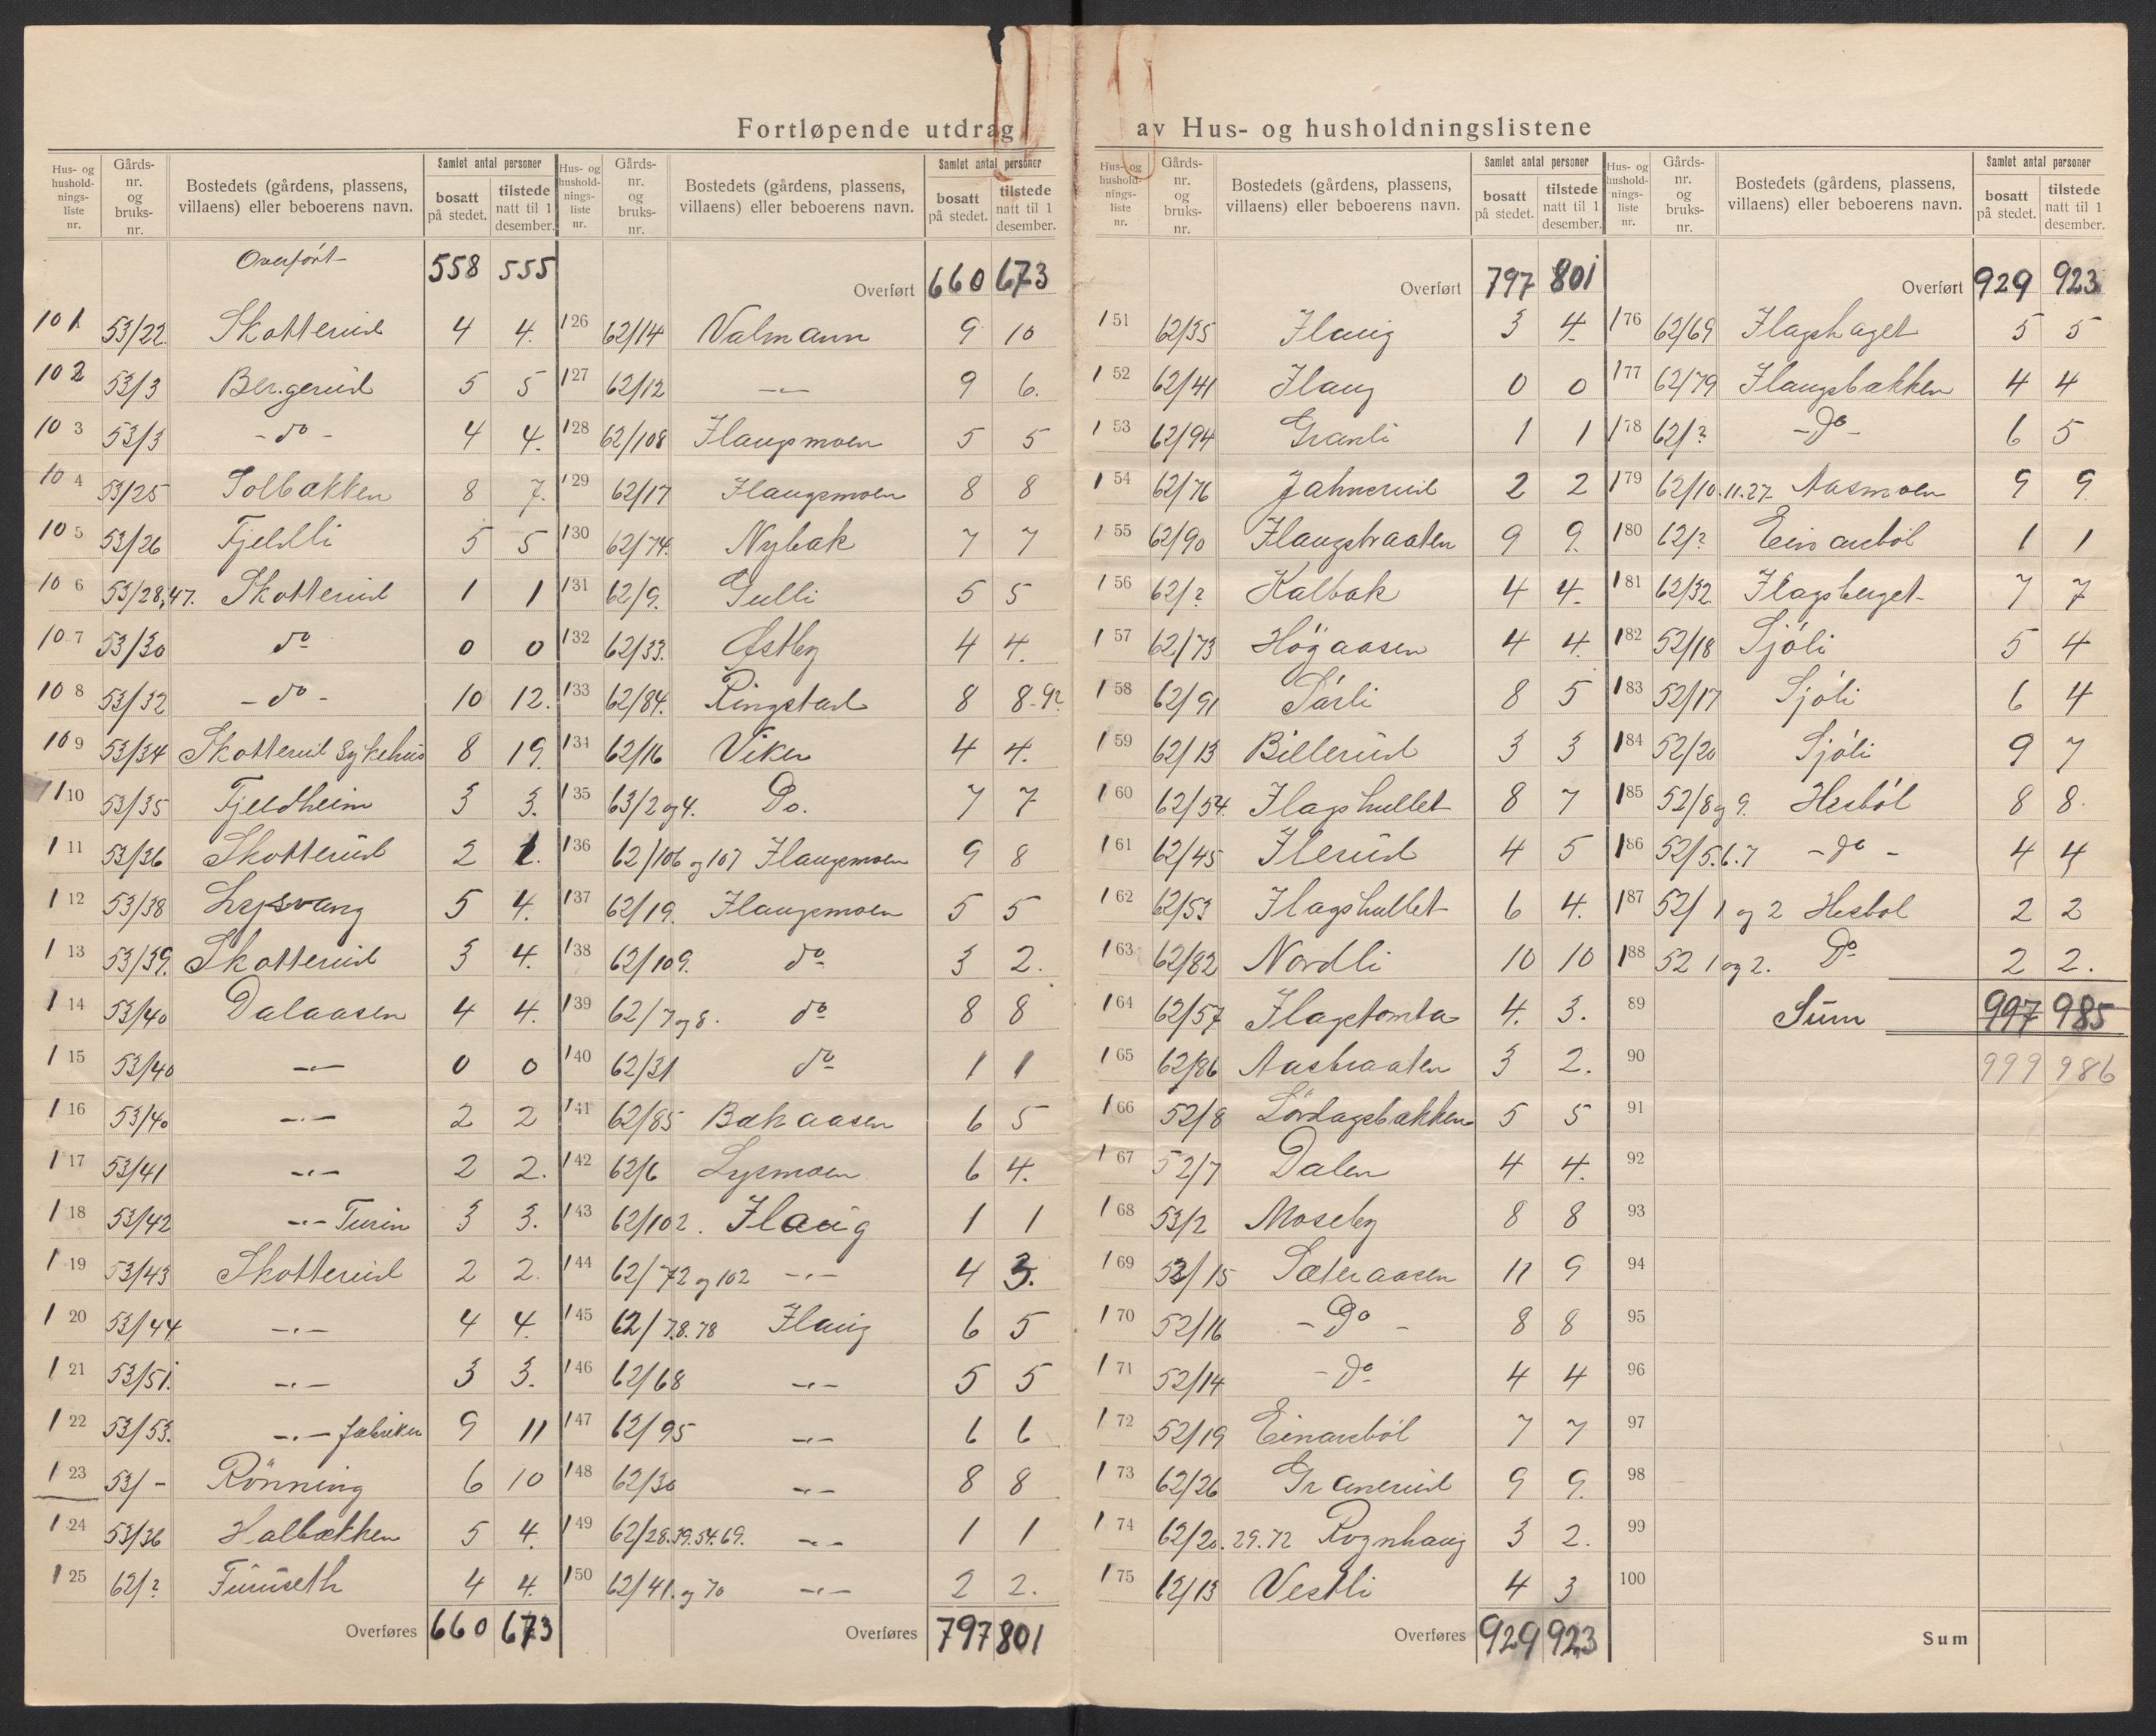 Fortløpende utdrag av Hus- og husholdningslistene
Hus- og hushold-nings-liste nr. Gårds-nr. og bruks-nr. Bostedets (gårdens, plassens, villaens) eller beboerens navn. Samlet antal personer bosatt på stedet. tilstede natt til 1 desember.
Overført 558 555
101 53/22 Skotterud 4 4.
102 53/3 Bergerud 5 5
103 53/3 - do - 4 4.
104 53/25 Solbakken 8 7.
105 53/26 Fjeldli 5 5
106 53/28,47. Skotterud 1 1
107 53/30 do 0 0
108 53/32 - do - 10 12.
109 53/34 Skotterud Sykehus 8 19.
110 53/35 Fjeldheim 3 3.
111 53/36 Skotterud 2 1.
112 53/38 Lysvang 5 4.
113 53/39. Skotterud 3 4.
114 53/40 Dalaasen 4 4.
115 53/40 -"- 0 0
116 53/40 -"- 2 2
117 53/41 -"- 2 2.
118 53/42 -"- Turin 3 3.
119 53/43 Skotterud 2 2.
120 53/44 -"- 4 4.
121 53/51. -"- 3 3.
122 53/53. -"- fabriker 9 11
123 53/- Rönning 6 10
124 53/36 Halbakken 5 4.
125 62/? Furuseth 4 4.
Overføres 660 673
Hus- og hushold-nings-liste nr. Gårds-nr. og bruks-nr. Bostedets (gårdens, plassens, villaens) eller beboerens navn. Samlet antal personer bosatt på stedet. tilstede natt til 1 desember.
Overført 660 673
126 62/14 Valmann 9 10
127 62/12 -"- 9 6.
128 62/108 Flaugsmoen 5 5
129 62/17 Flaugsmoen 8 8
130 62/74. Nybak 7 7
131 62/9. Gulli 5 5
132 62/33. Østby 4 4.
133 62/84. Ringstad 8 8-9?
134 62/16 Viken 4 4.
135 63/2 og 4. Do. 7 7
136 62/106 og 107 Flaugsmoen 9 8
137 62/19. Flaugsmoen 5 5
138 62/109. do 3 2.
139 62/7 og 8. do 8 8
140 62/31 do 1 1
141 62/85 Bakaasen 6 5
142 62/6 Lysmoen 6 4.
143 62/102. Flaug 1 1
144 62/72 og 102 -"- 4 3.
145 62/7.8.78 Flaug 6 5
146 62/68 -"- 5 5
147 62/95 -"- 6 6
148 62/30 -"- 8 8
149 62/28.39.54.69. -"- 1 1
150 62/41. og 70 -"- 2 2.
Overføres 797 801
Hus- og hushold-nings-liste nr. Gårds-nr. og bruks-nr. Bostedets (gårdens, plassens, villaens) eller beboerens navn. Samlet antal personer bosatt på stedet. tilstede natt til 1 desember.
Overført 797 801
151 62/35 Flaug 3 4.
152 62/41 Flaug 0 0
153 62/94 Granli 1 1
154 62/76 Jahnerud 2 2
155 62/90 Flaugbraaten 9 9.
156 62/? Kalbak 4 4.
157 62/73 Högaasen 4 4.
158 62/91 Sörli 8 5
159 62/13 Billerud 3 3
160 62/54. Flagshullet 8 7
161 62/45 Flerud 4 5
162 62/53 Flagshullet 6 4.
163 62/82 Nordli 10 10
164 62/57 Flagstomta 4. 3.
165 62/86 Aasbraaten 3 2.
166 52/8 Lördagsbakken 5 5
167 52/7 Dalen 4 4.
168 53/2 Moseby 8 8
169 52/15 Sæteraasen 11 9
170 52/16 - Do - 8 8
171 52/14 - do 4 4
172 52/19 Einarsböl 7 7
173 62/26 Granerud 9 9.
174 62/20.29.72 Rognhaug 3 2.
175 62/13 Vestli 4 3
Overføres 929 923
Hus- og hushold-nings-liste nr. Gårds-nr. og bruks-nr. Bostedets (gårdens, plassens, villaens) eller beboerens navn. Samlet antal personer bosatt på stedet. tilstede natt til 1 desember.
Overført 929 923
176 62/69 Flagshaget 5 5
177 62/79 Flaugsbakken 4 4
178 62/? - Do - 6 5
179 62/10.11.27. Aasmoen 9 9
180 62/? Einarsböl 1 1
181 62/32 Flagsberget 7 7
182 52/18 Sjöli 5 4
183 52/17 Sjöli 6 4
184 52/20 Sjöli 9 7
185 52/8 og 9. Hesböl 8 8.
186 52/5.6.7 - do - 4 4
187 52/1 og 2 Hesbol 2 2
188 52 1 og 2. Do 2 2.
89 Sum 997 985
90 999 986
91
92
93
94
95
96
97
98
99
100
Sum